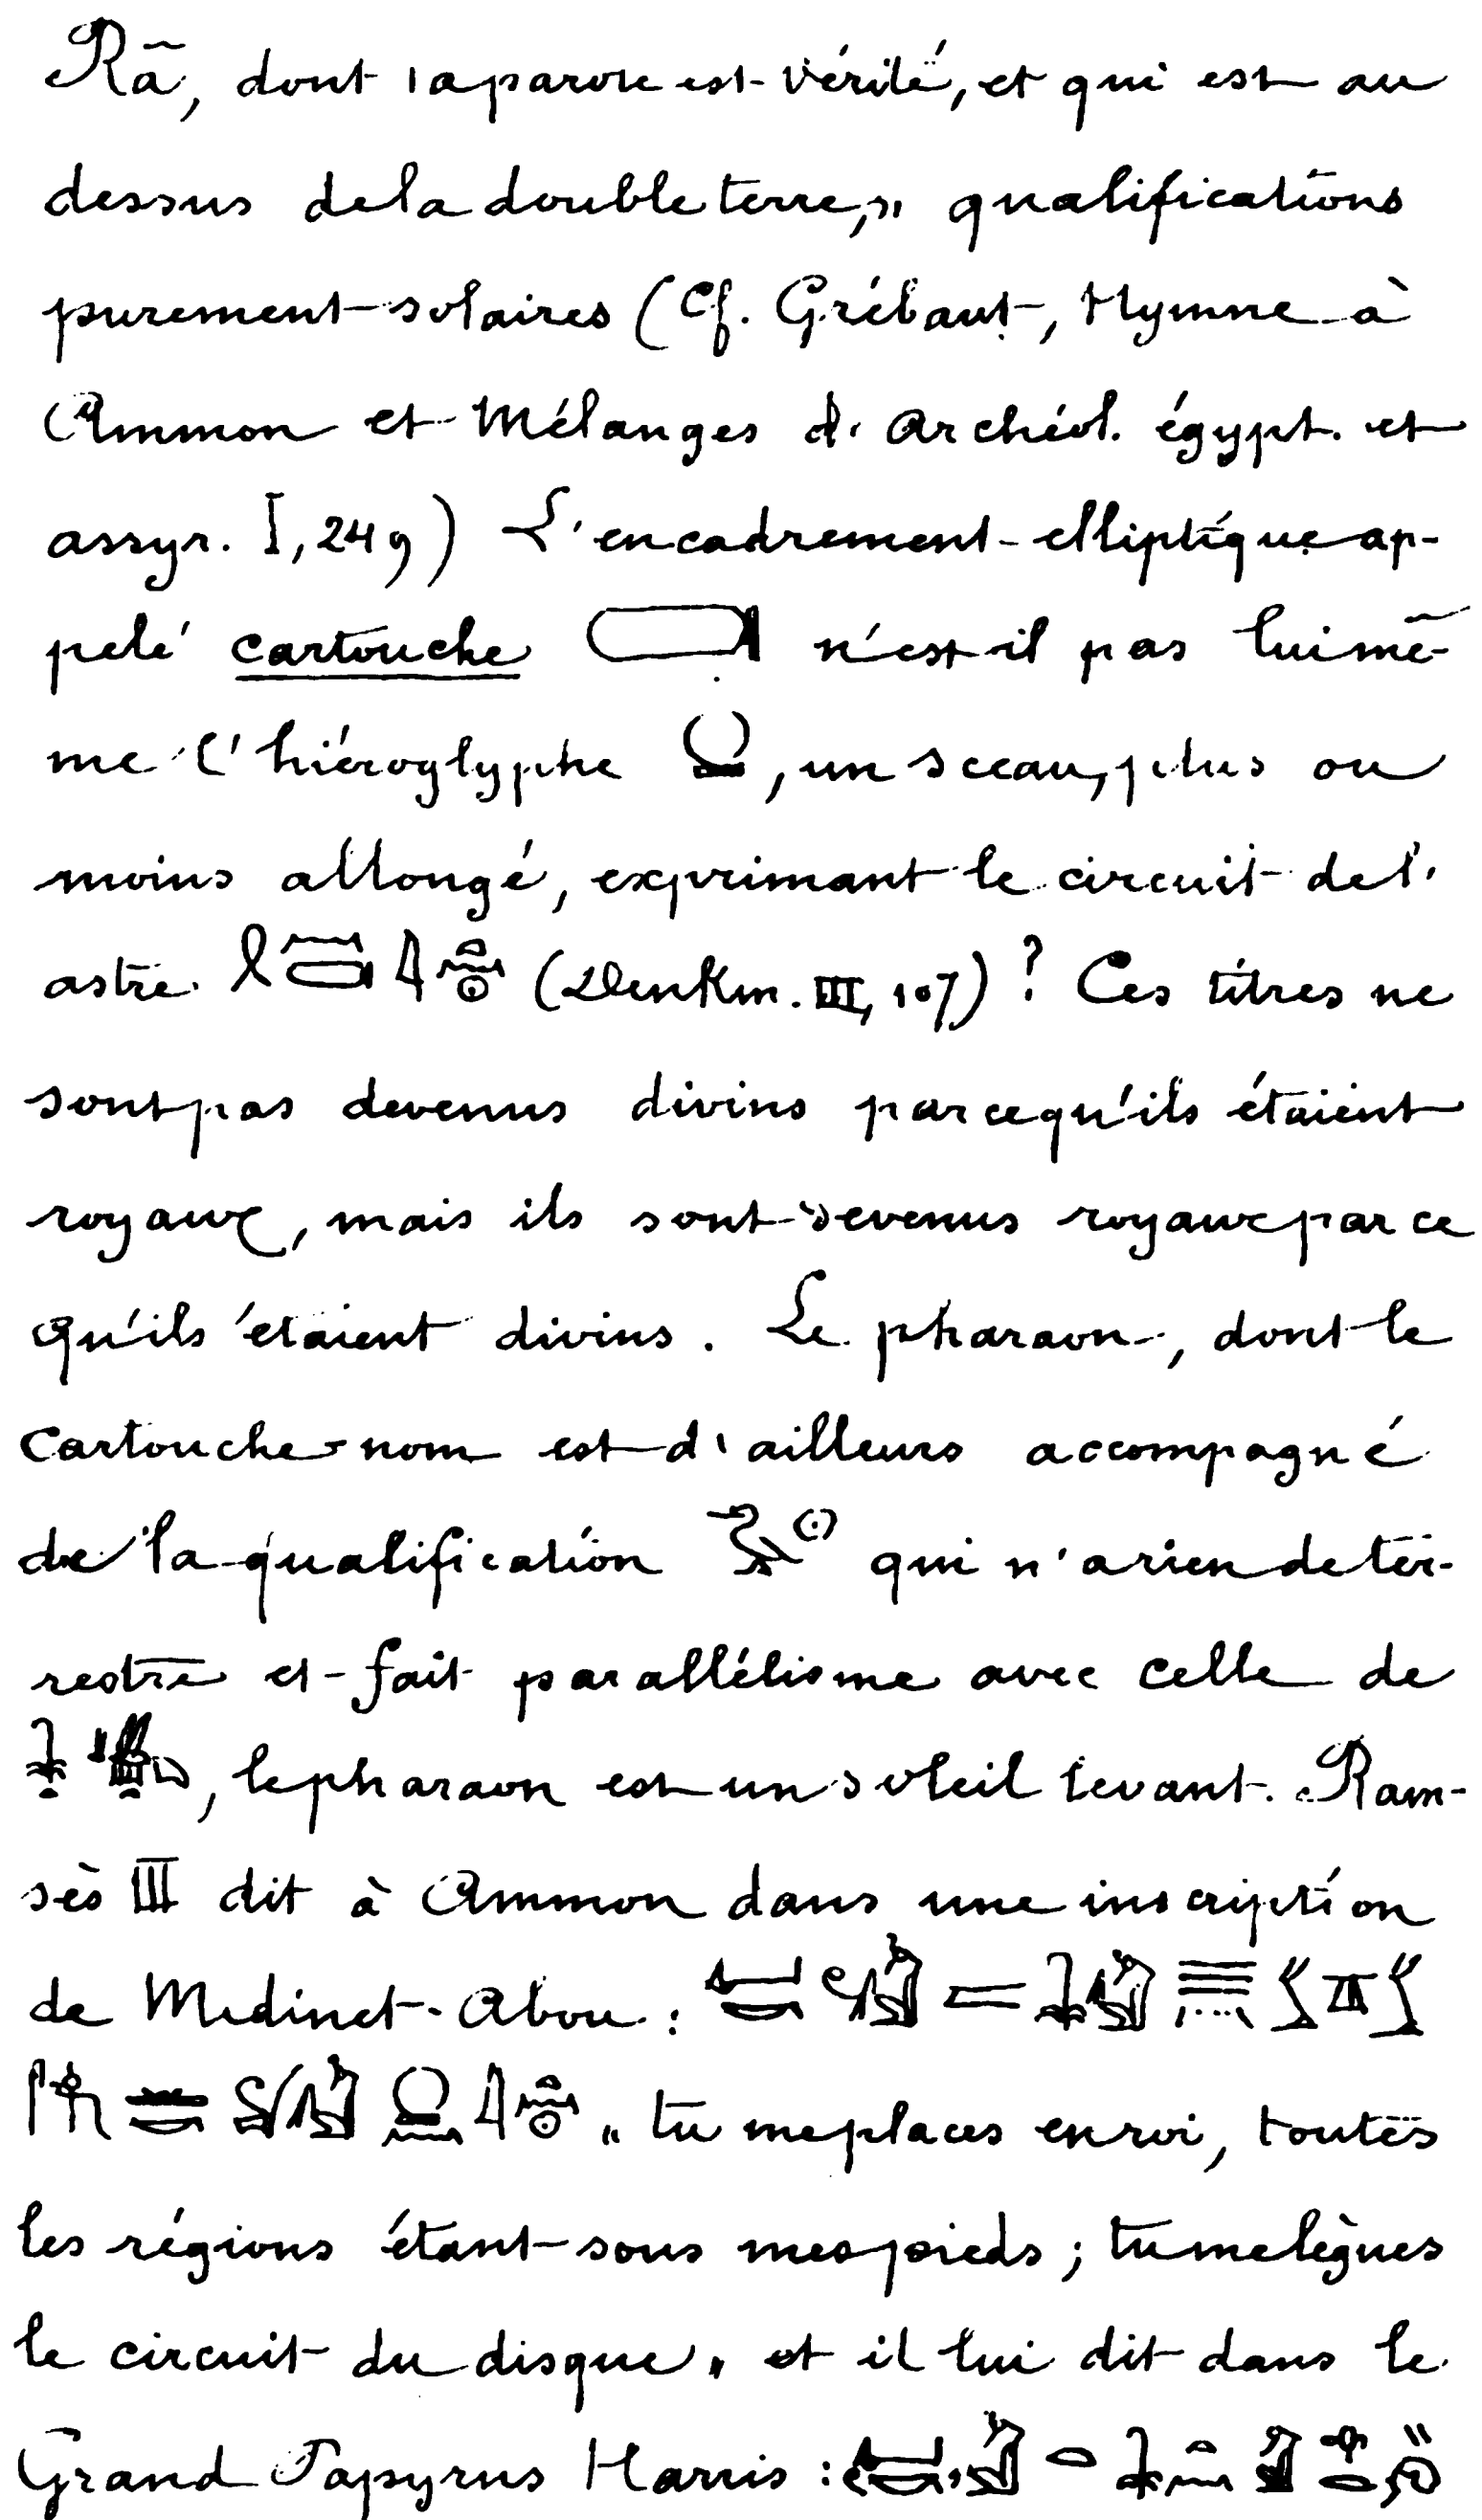 Râ, dont la parole est vérité, et qui est au
dessus de la double terre, » qualifications
purement solaires (Cf. Grébaut, Hymne à
Ammon et Mélanges d'Archéol. égypt. et
assyr. I, 249) L'encadrement elliptique ap-
pelé cartouche n'est-il pas lui mê-
me l'hiéroglyphe , un sceau, plus ou
moins allongé, exprimant le circuit de l'
astre (Denkm. III, 107) ? Ces titres ne
sont pas devenus divins parcequ'ils étaient
royaux, mais ils sont devenus royaux parce
qu'ils étaient divins. Le pharaon, dont le
cartouche-nom est d'ailleurs accompagné
de la qualification qui n'a rien de ter-
restre et fait parallélisme avec celle de
, le pharaon est un soleil levant. Ram-
sès III dit à Ammon dans une inscription
de Medinet-Abou :
« tu me places en roi, toutes
les régions étant sous mes pieds ; tu me lègues
le circuit du disque » et il lui dit dans le
Grand Papyrus Harris :